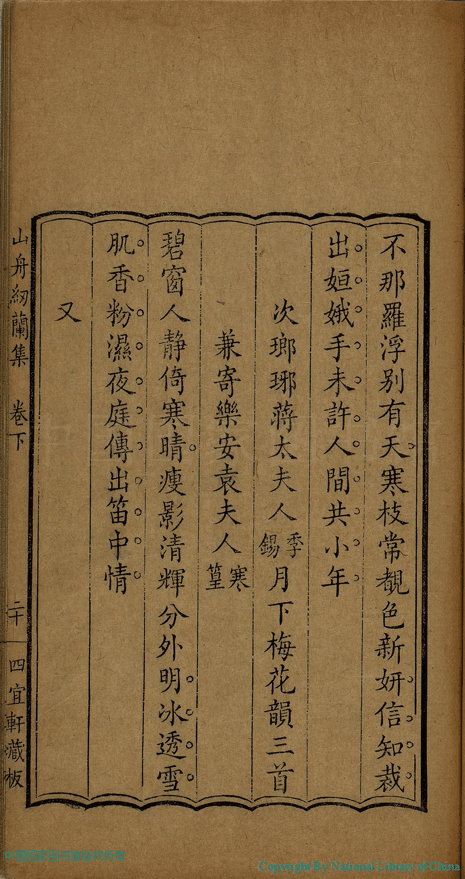 不那羅浮別有天寒枝常覩色新妍信知裁
出姮娥手未許人間共小年
次瑯琊蔣太夫人季錫月下梅花韻三首
兼寄樂安袁夫人寒篁
碧窗人靜倚寒晴瘦影清輝分外明冰透雪
肌香粉濕夜庭傳出笛中情
又
山舟紉蘭集 卷下 二十 四宜軒藏板
Copyright By National Library of China